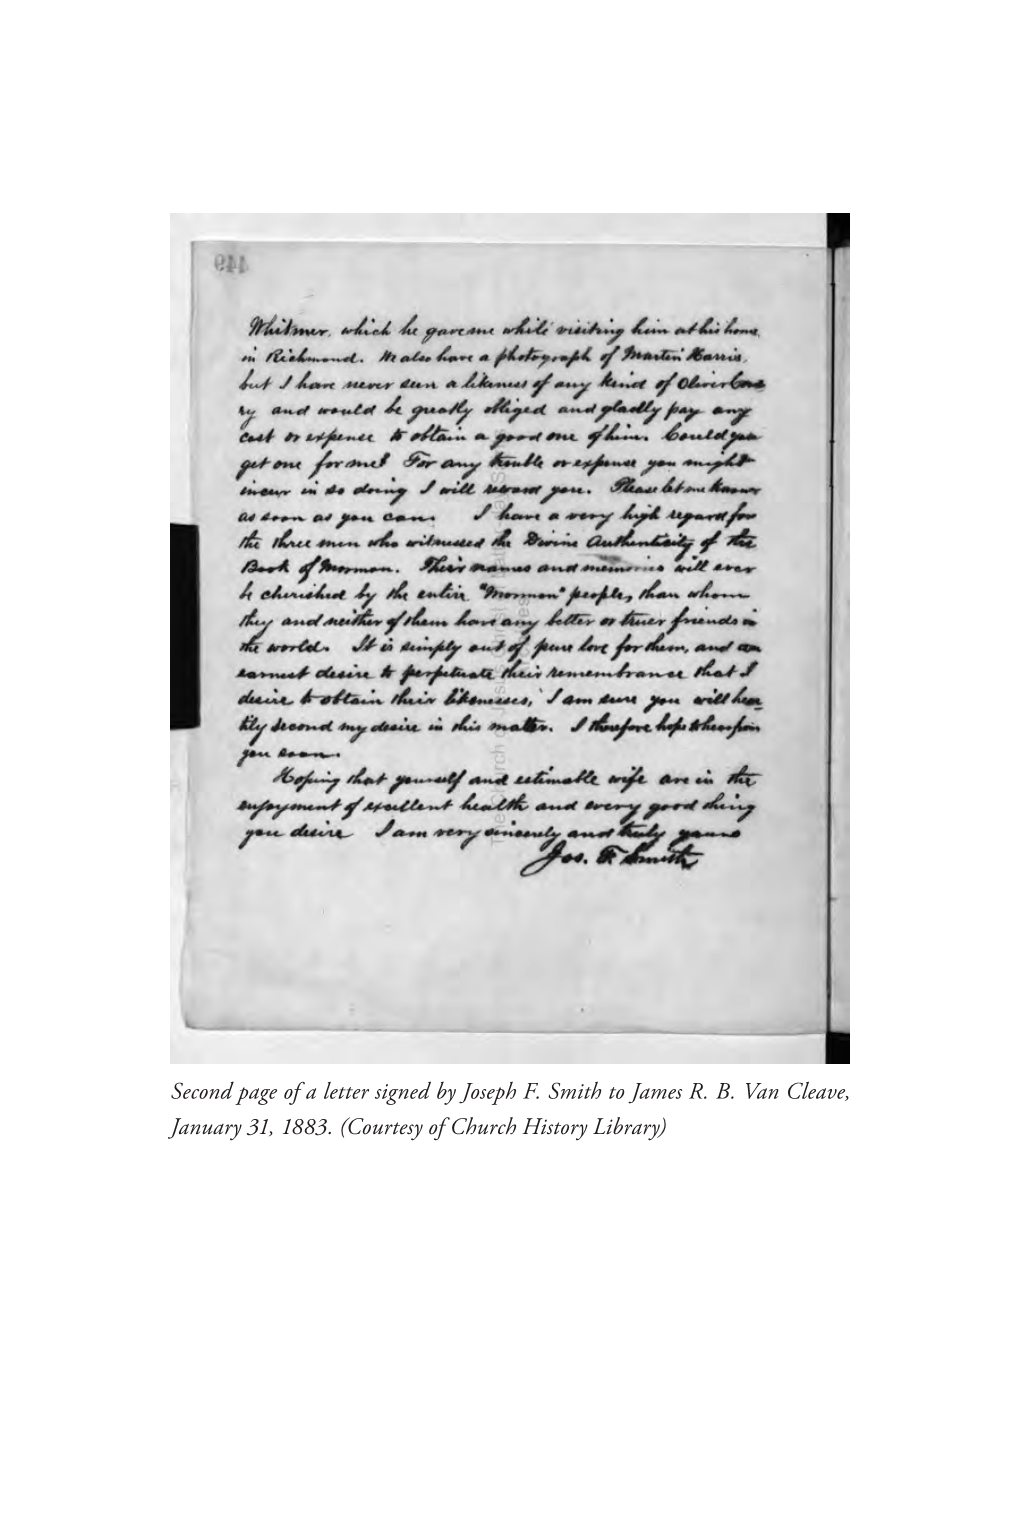 449
Whitmer, which he gave me while visiting him at his home,
in Richmond. We also have a photograph of Martin Harris,
but I have never seen a likeness of any kind of Oliver Cowd
ry and would be greatly obliged and gladly pay any
cost or expense to obtain a good one of him. Could you
get one for me? For any trouble or expense you might
incur in so doing I will reward you. Please let me know
as soon as you can. I have a very high regard for
the three men who witnessed the Divine Authenticity of the
Book of Mormon. Their names and memories will ever
be cherished by the entire "Mormon" people, than whom
they and neither of them have any better or truer friends in
the world. It is simply out of pure love for them, and an
earnest desire to perpetuate their remembrance that I
desire to obtain their likenesses, I am sure you will hear
tily second my desire in this matter. I therefore hope to hear from
you soon.
Hoping that yourself and estimable wife are in the
enjoyment of excellent health and every good thing
you desire I am very sincerely and truly yours
Jos. F. Smith
Second page of a letter signed by Joseph F. Smith to James R. B. Van Cleave,
January 31, 1883. (Courtesy of Church History Library)